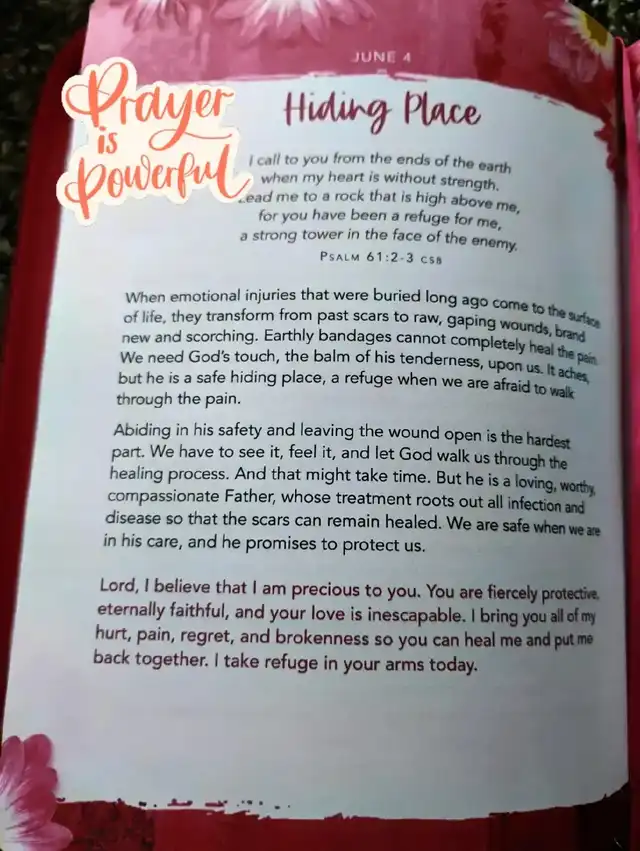 JUNE 4
Prayer
is
Powerful
Hiding Place
I call to you from the ends of the earth
when my heart is without strength.
ead me to a rock that is high above me,
for you have been a refuge for me,
a strong tower in the face of the enemy.
PSALM 61:2-3 CSB
When emotional injuries that were buried long ago come to the surface
of life, they transform from past scars to raw, gaping wounds, brand
new and scorching. Earthly bandages cannot completely heal the pain.
We need God's touch, the balm of his tenderness, upon us. It aches,
but he is a safe hiding place, a refuge when we are afraid to walk
through the pain.
Abiding in his safety and leaving the wound open is the hardest
part. We have to see it, feel it, and let God walk us through the
healing process. And that might take time. But he is a loving, worthy,
compassionate Father, whose treatment roots out all infection and
disease so that the scars can remain healed. We are safe when we are
in his care, and he promises to protect us.
Lord, I believe that I am precious to you. You are fiercely protective,
eternally faithful, and your love is inescapable. I bring you all of my
hurt, pain, regret, and brokenness so you can heal me and put me
back together. I take refuge in your arms today.